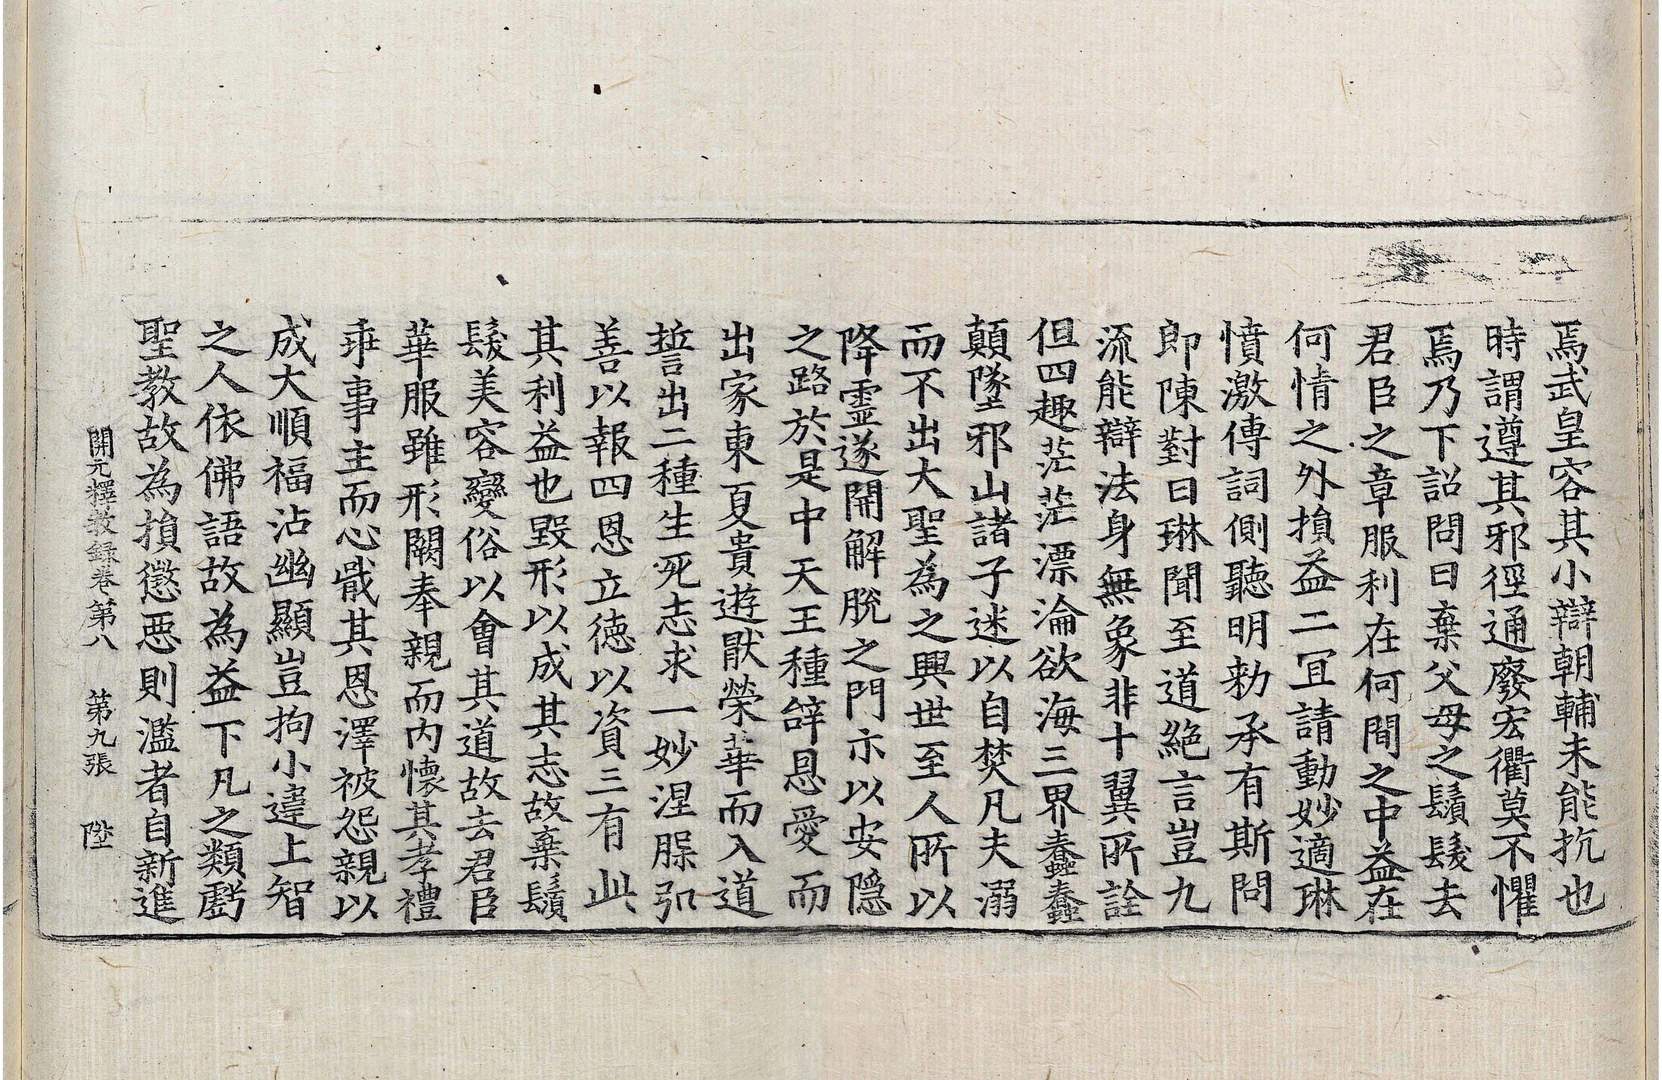 焉武皇容其小辯朝輔未能抗也
時謂遵其邪徑通廢宏衢莫不懼
焉乃下詔問曰棄父母之鬚髮去
君臣之章服利在何間之中益在
何情之外損益二冝請動妙適琳
憤激傳詞側聽明勑承有斯問
即陳對曰琳聞至道絕言豈九
流能辯法身無象非十翼所詮
但四趣茫茫漂淪欲海三界蠢蠢
顛墜邪山諸子迷以自焚凡夫溺
而不出大聖為之興世至人所以
降靈遂開解脫之門示以安隱
之路於是中天王種辝恩愛而
出家東夏貴遊猒榮華而入道
誓出二種生死志求一妙涅槃弘
善以報四恩立德以資三有此
其利益也毀形以成其志故棄鬚
髮美容變俗以會其道故去君臣
華服雖形闕奉親而內懷其孝禮
乖事主而心戢其恩澤被怨親以
成大順福沾幽顯豈拘小違上智
之人依佛語故為益下凡之類虧
聖教故為損懲惡則濫者自新進
開元釋教錄卷第八 第九張 陞